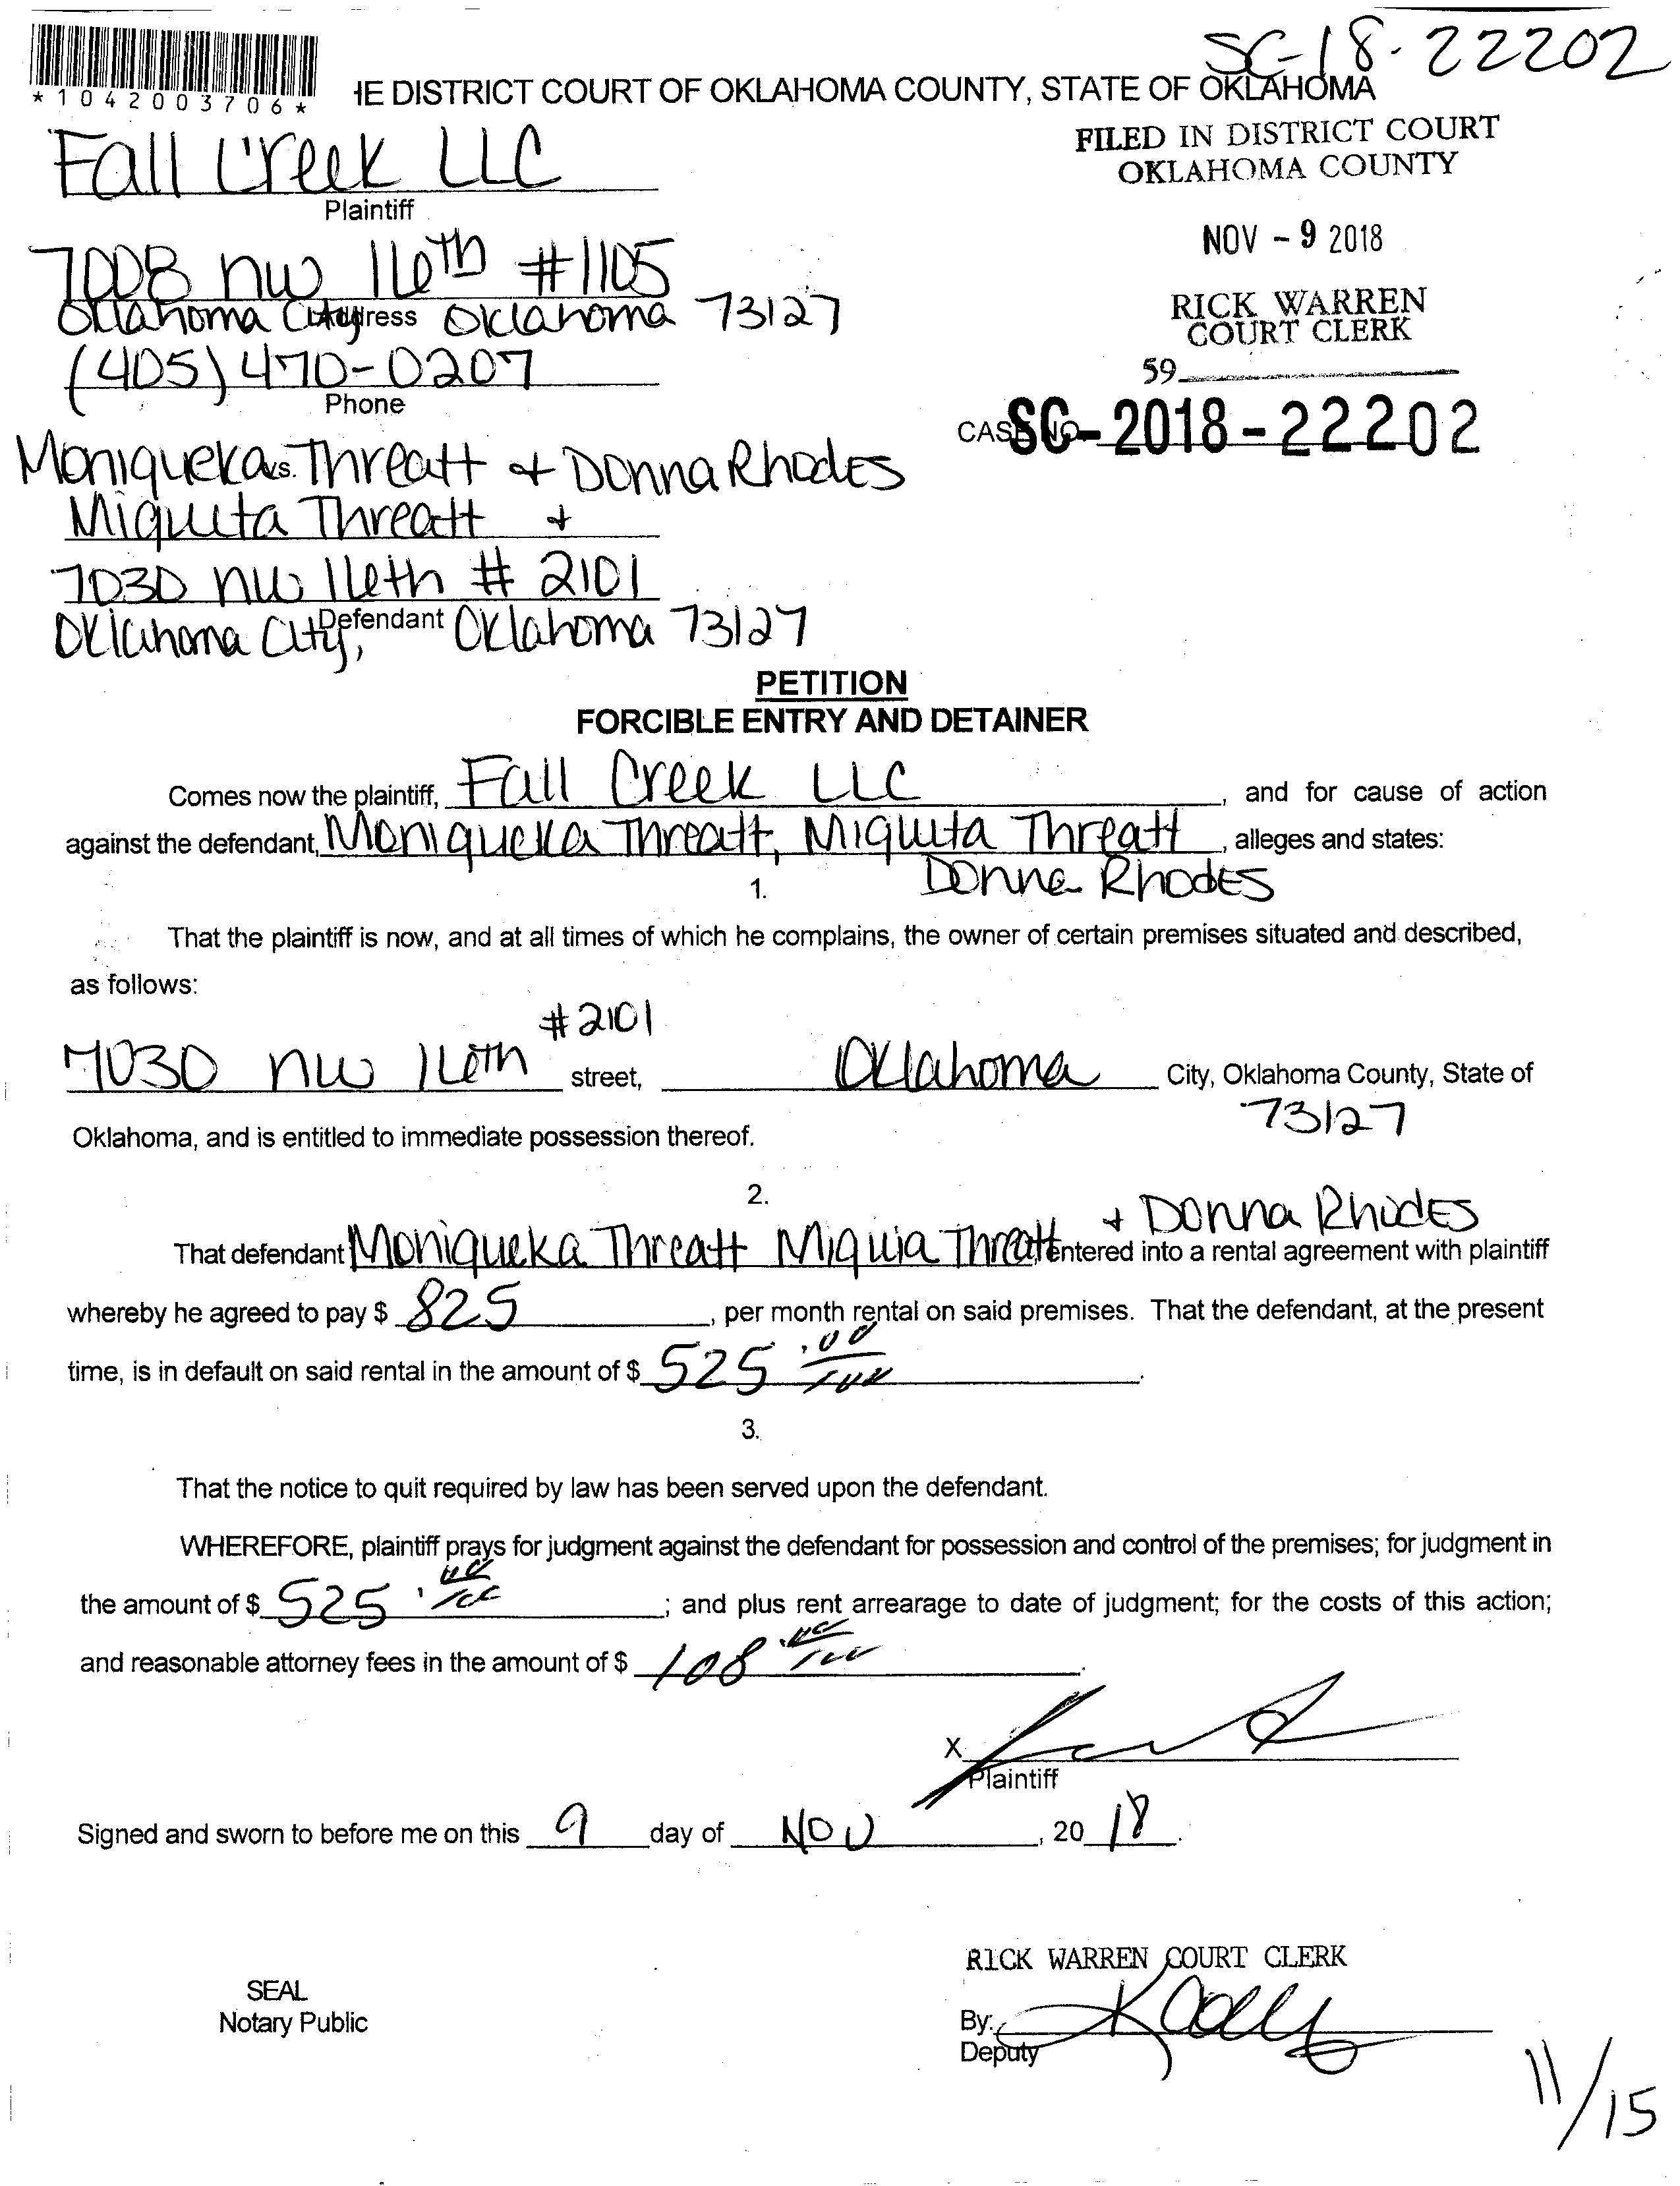 SC-18-22202
*1042003706*
HE DISTRICT COURT OF OKLAHOMA COUNTY, STATE OF OKLAHOMA
Fall Creek LLC
Plaintiff
FILED IN DISTRICT COURT
OKLAHOMA COUNTY
NOV - 9 2018
RICK WARREN
COURT CLERK
59
7008 nw 16th #1105
Address
Oklahoma City Oklahoma 73127
(405) 470-0207
Phone
CASE NO. SC-2018-22202
vs.
Moniqueka Threatt + Donna Rhodes
Miquita Threatt +
7030 nw 16th # 2101
Defendant
Oklahoma City, Oklahoma 73127
PETITION
FORCIBLE ENTRY AND DETAINER
Comes now the plaintiff, Fall Creek LLC, and for cause of action
against the defendant, Moniqueka Threatt, Miquita Threatt, alleges and states:
Donna Rhodes
1.
That the plaintiff is now, and at all times of which he complains, the owner of certain premises situated and described,
as follows:
#2101
7030 nw 16th street, Oklahoma City, Oklahoma County, State of
73127
Oklahoma, and is entitled to immediate possession thereof.
2.
+ Donna Rhodes
That defendant Moniqueka Threatt Miquia Threatt, entered into a rental agreement with plaintiff
whereby he agreed to pay $ 825, per month rental on said premises. That the defendant, at the present
time, is in default on said rental in the amount of $ 525 .00/100.
3.
That the notice to quit required by law has been served upon the defendant.
WHEREFORE, plaintiff prays for judgment against the defendant for possession and control of the premises; for judgment in
the amount of $ 525 .00/100; and plus rent arrearage to date of judgment; for the costs of this action;
and reasonable attorney fees in the amount of $ 108 .00/100.
X
Plaintiff
Signed and sworn to before me on this 9 day of NOV, 20 18.
RICK WARREN COURT CLERK
SEAL
Notary Public
By:
Deputy
11/15